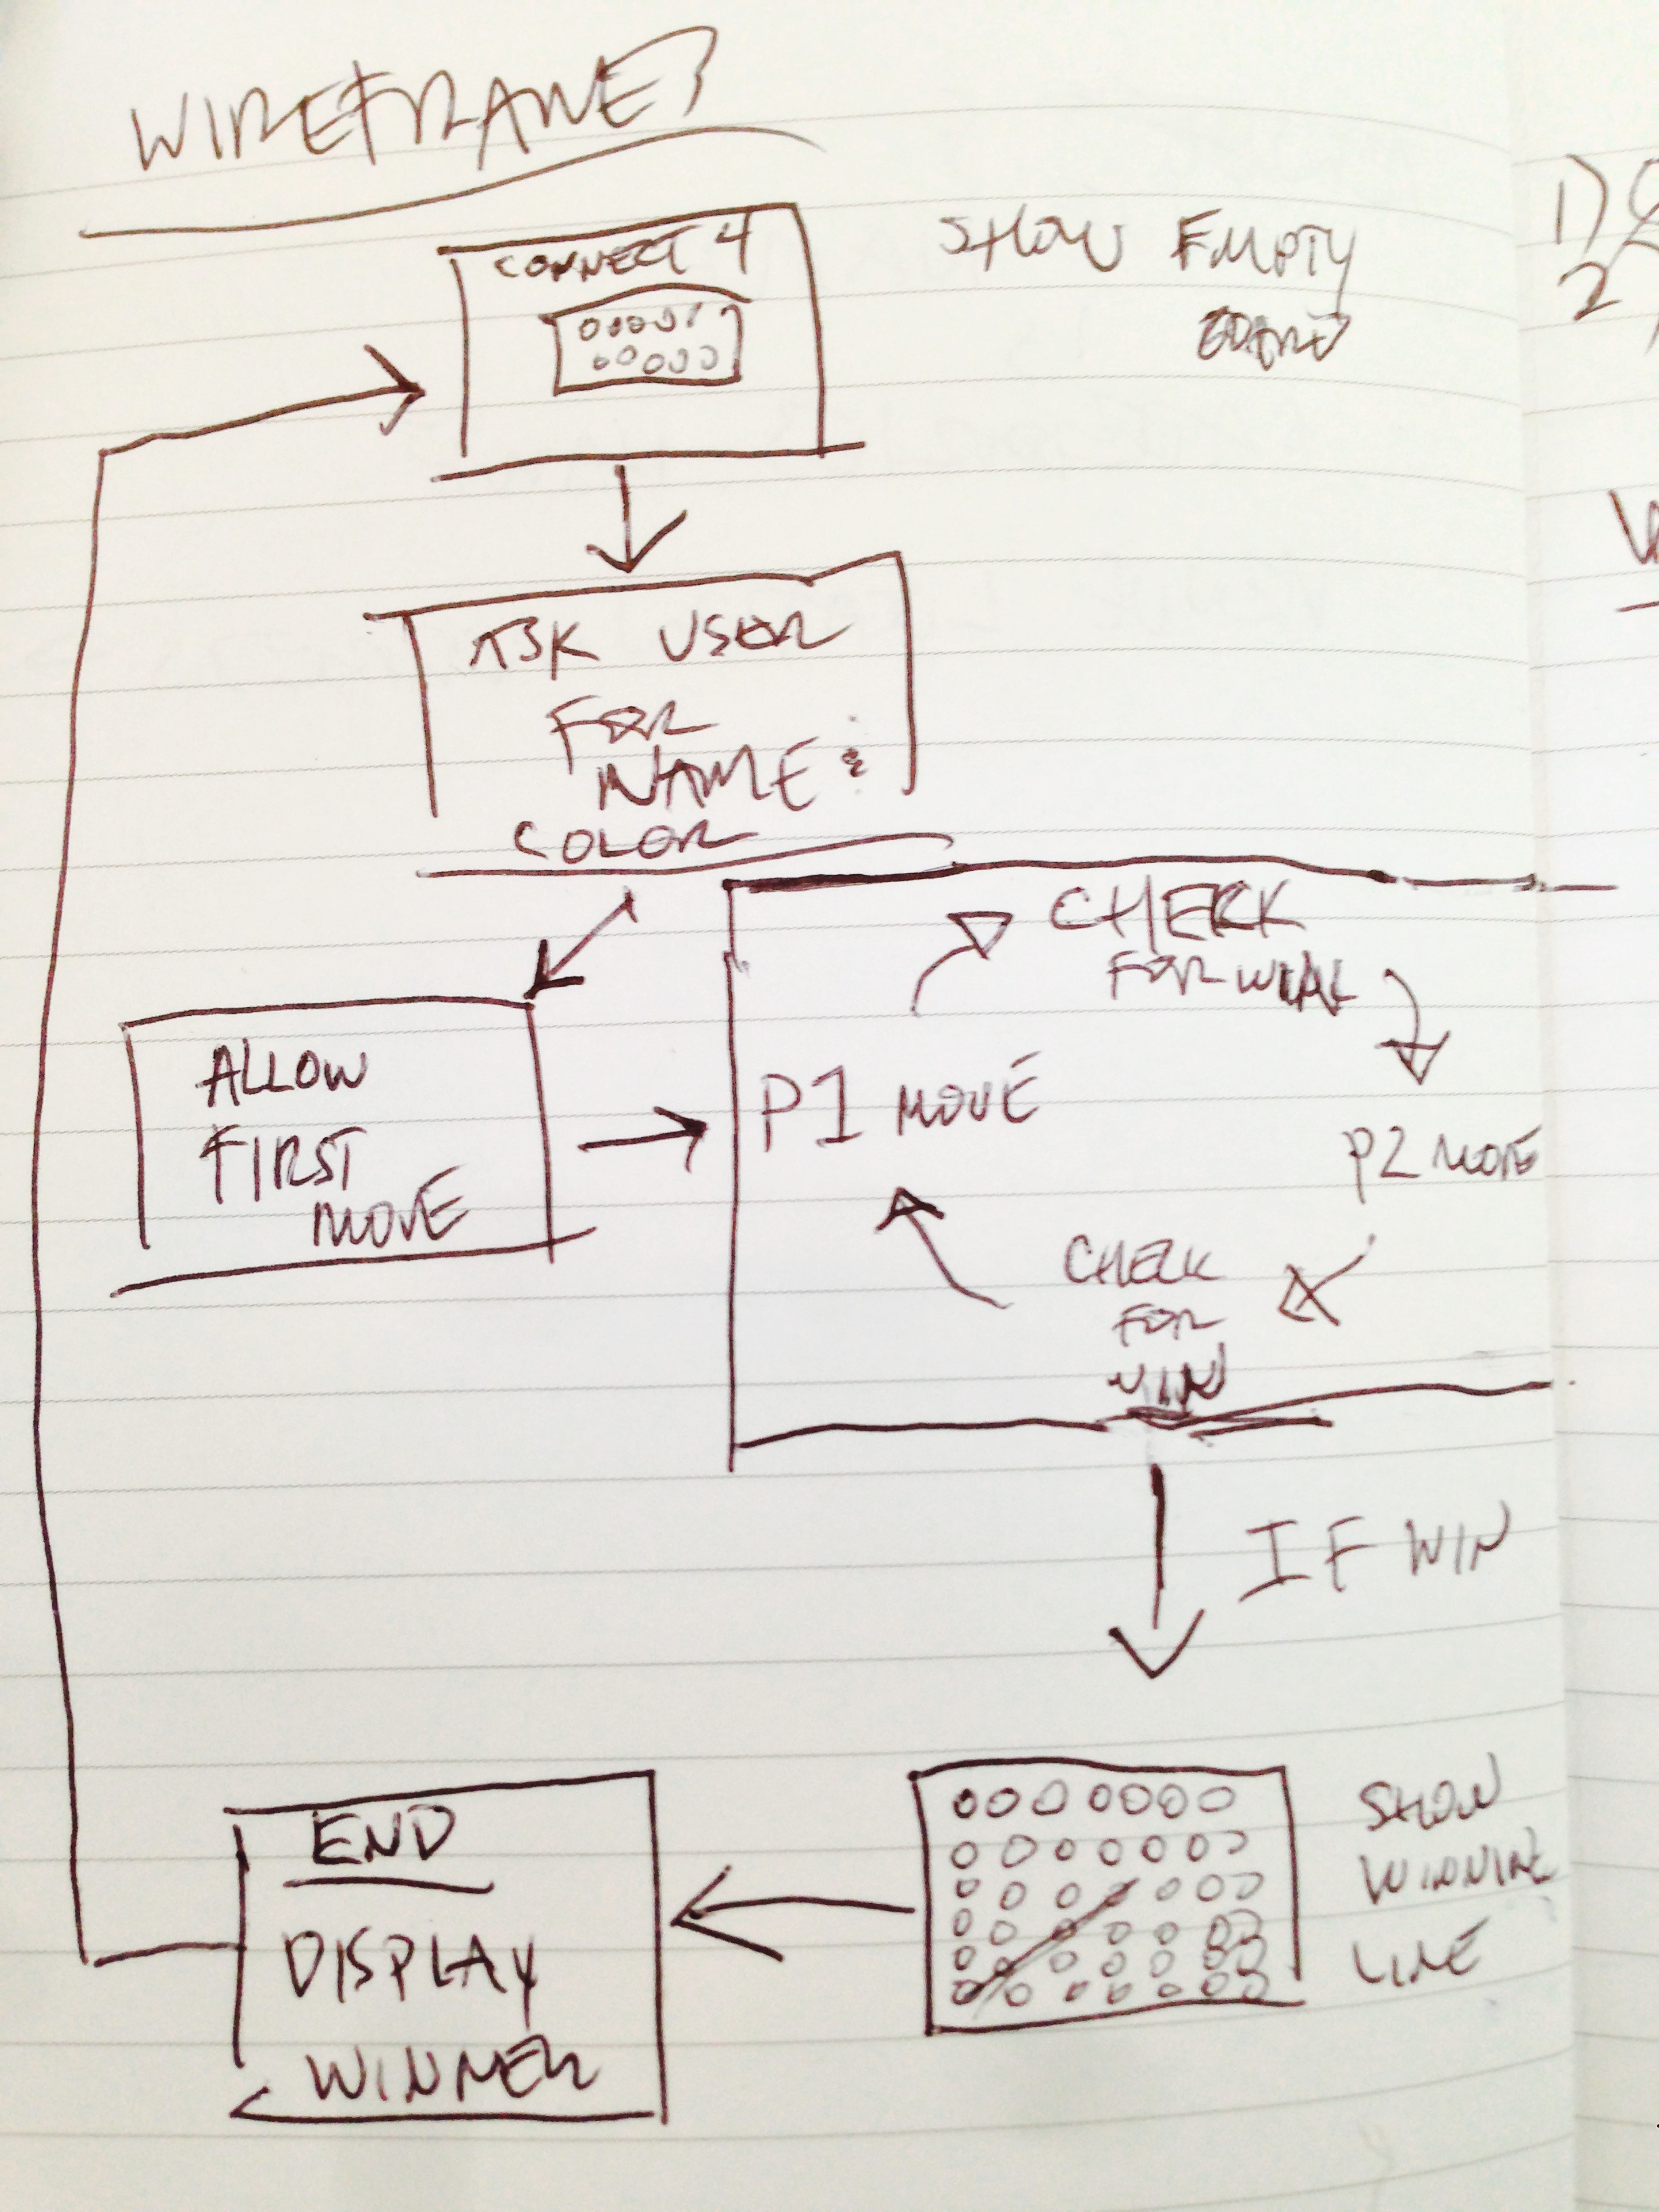 WIREFRAMES
CONNECT 4
SHOW EMPTY
BOARD
ASK USER
FOR
NAME &
COLOR
ALLOW
FIRST
MOVE
P1 MOVE
CHECK
FOR WIN
P2 MOVE
CHECK
FOR
WIN
IF WIN
SHOW
WINNING
LINE
END
DISPLAY
WINNER
1)
2